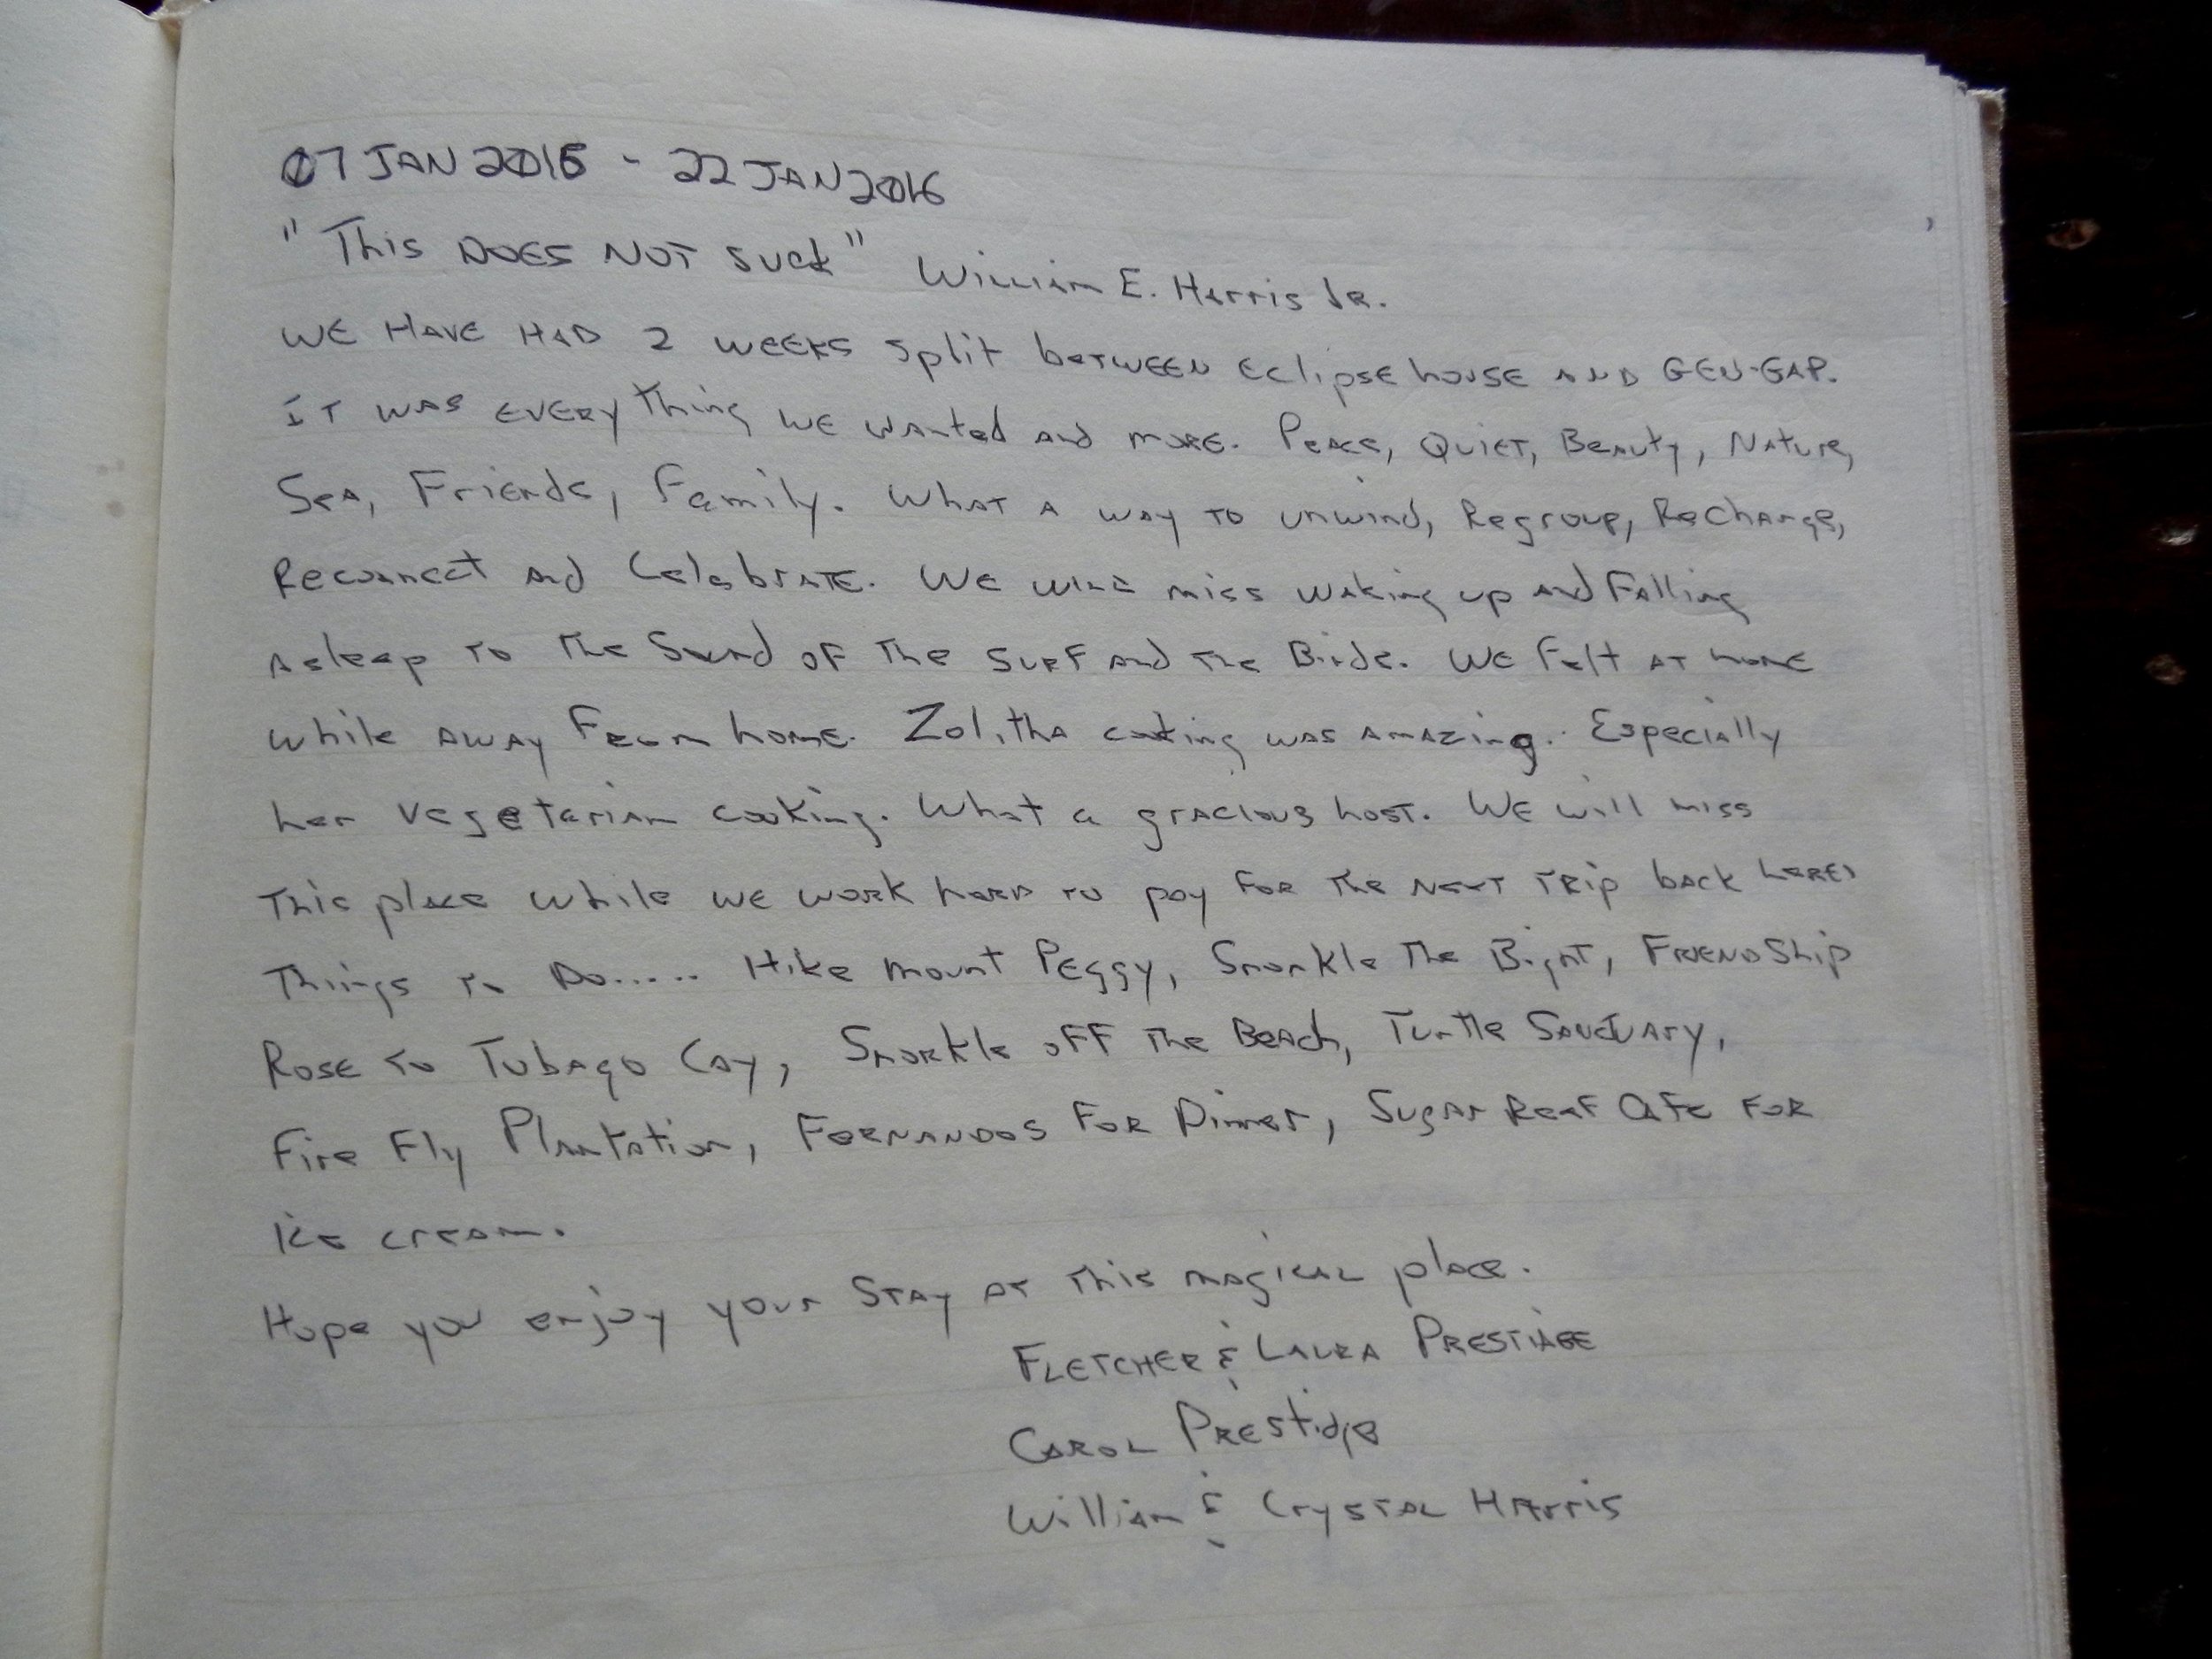 07 JAN 2016 - 22 JAN 2016
"This DOES NOT SUCK" William E. Harris JR.
WE HAVE HAD 2 WEEKS split between Eclipse house AND GEN-GAP.
IT WAS EVERYthing WE wanted and MORE. Peace, QUIET, Beauty, Nature,
Sea, Friends, Family. What A way TO unwind, Regroup, Recharge,
Reconnect and CelebrATE. We will miss waking up and Falling
Asleep TO The Sound of The SURF and The Birds. We Felt AT HOME
while AWAY From home. Zolitha cooking WAS AMAZing. Especially
her vegetarian cooking. What a gracious host. We will miss
This place while WE WORK hard TO pay FOR The NEXT TRip back here.
Things To Do..... Hike mount Peggy, Snorkle The Bight, FRIENDShip
ROSE to Tubago Cay, Snorkle off The Beach, Turtle Sanctuary,
Fire Fly Plantation, FERNANDOS FOR Dinner, Sugar Reef Cafe FOR
Ice cream.
Hope you enjoy your STAY at This magical place.
FLETCHER & LAURA PRESTIDGE
CAROL PRESTidge
William & Crystal Harris